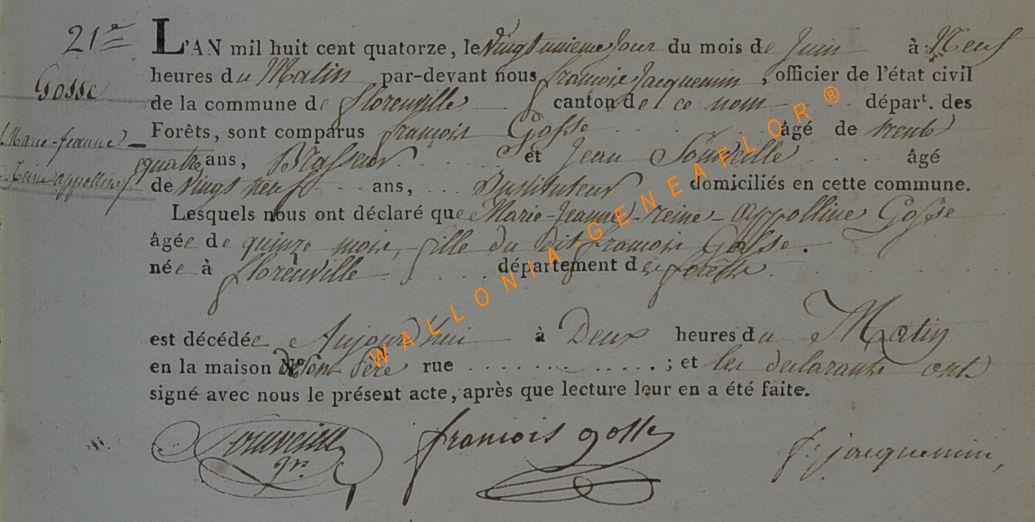 21e
Gosse
Marie-jeanne
Reine appolline
L'AN mil huit cent quatorze, le vingt unieme jour du mois de juin à Neuf
heures du Matin par-devant nous françois Jacquemin, officier de l'état civil
de la commune de florenville canton de ce nom départ. des
Forêts, sont comparus françois Gosse âgé de trente
quatre ans, Brasseur et Jean âgé
de vingt neuf ans, Instituteur domiciliés en cette commune.
Lesquels nous ont déclaré que Marie-Jeanne-reine-appolline Gosse
âgée de quinze mois, fille du dit françois Gosse.
née à florenville département des forêts
est décédée Aujourd'hui à Deux heures du Matin
en la maison de son Père rue ; et les declarants ont
signé avec nous le présent acte, après que lecture leur en a été faite.
françois gosse
f. jacquemin,
WALLONIA-GENEAFLOR®